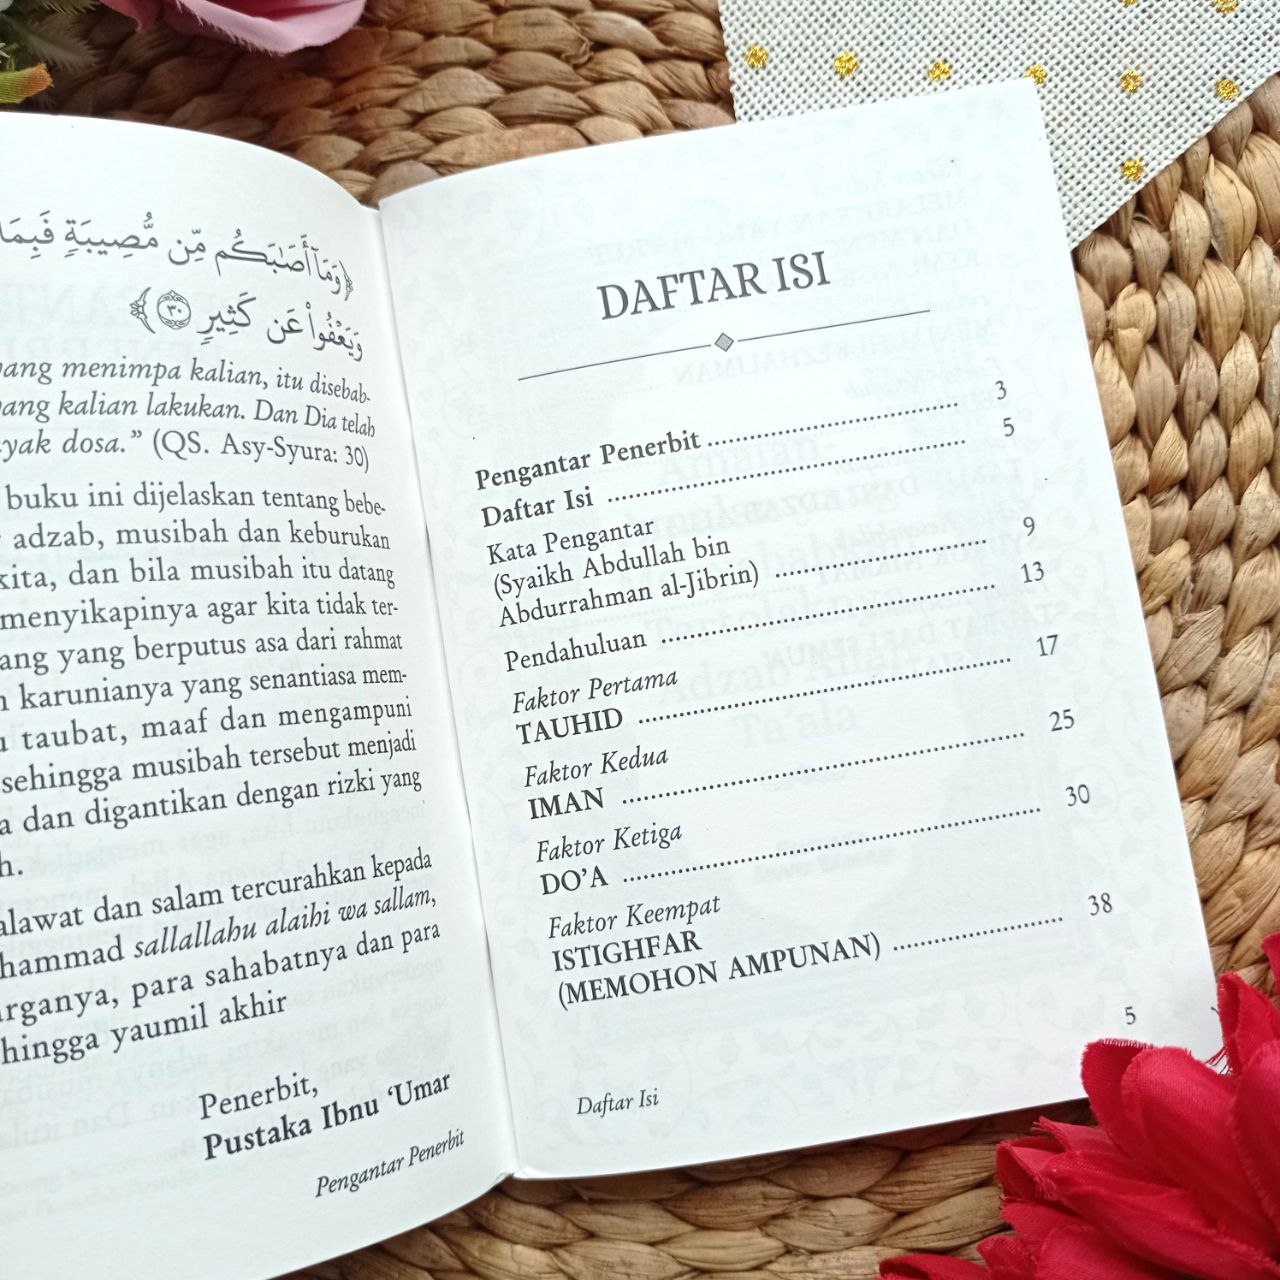 ﴿وَمَآ أَصَٰبَكُم مِّن مُّصِيبَةٍ فَبِمَا
وَيَعْفُوا۟ عَن كَثِيرٍ ٣٠﴾
ang menimpa kalian, itu disebab-
ang kalian lakukan. Dan Dia telah
yak dosa.” (QS. Asy-Syura: 30)
buku ini dijelaskan tentang bebe-
adzab, musibah dan keburukan
kita, dan bila musibah itu datang
menyikapinya agar kita tidak ter-
ang yang berputus asa dari rahmat
n karunianya yang senantiasa mem-
u taubat, maaf dan mengampuni
sehingga musibah tersebut menjadi
a dan digantikan dengan rizki yang
h.
alawat dan salam tercurahkan kepada
hammad sallallahu alaihi wa sallam,
arganya, para sahabatnya dan para
hingga yaumil akhir
Penerbit,
Pustaka Ibnu ‘Umar
Pengantar Penerbit
DAFTAR ISI
Pengantar Penerbit ........................................ 3
Daftar Isi ........................................ 5
Kata Pengantar
(Syaikh Abdullah bin
Abdurrahman al-Jibrin) ........................................ 9
Pendahuluan ........................................ 13
Faktor Pertama
TAUHID ........................................ 17
Faktor Kedua
IMAN ........................................ 25
Faktor Ketiga
DO’A ........................................ 30
Faktor Keempat
ISTIGHFAR
(MEMOHON AMPUNAN) ........................................ 38
5
Daftar Isi